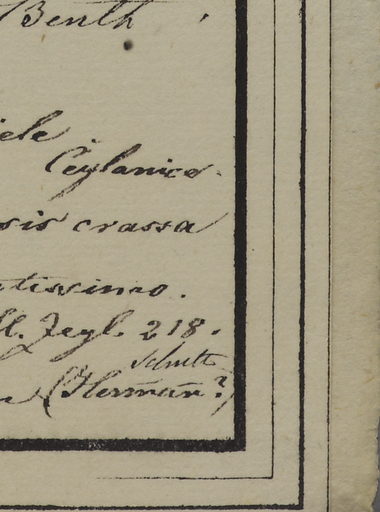 Benth
iele
Ceylanico.
sis crassa
tissimo.
fl. Zeyl. 218.
Schult
(Herman?)